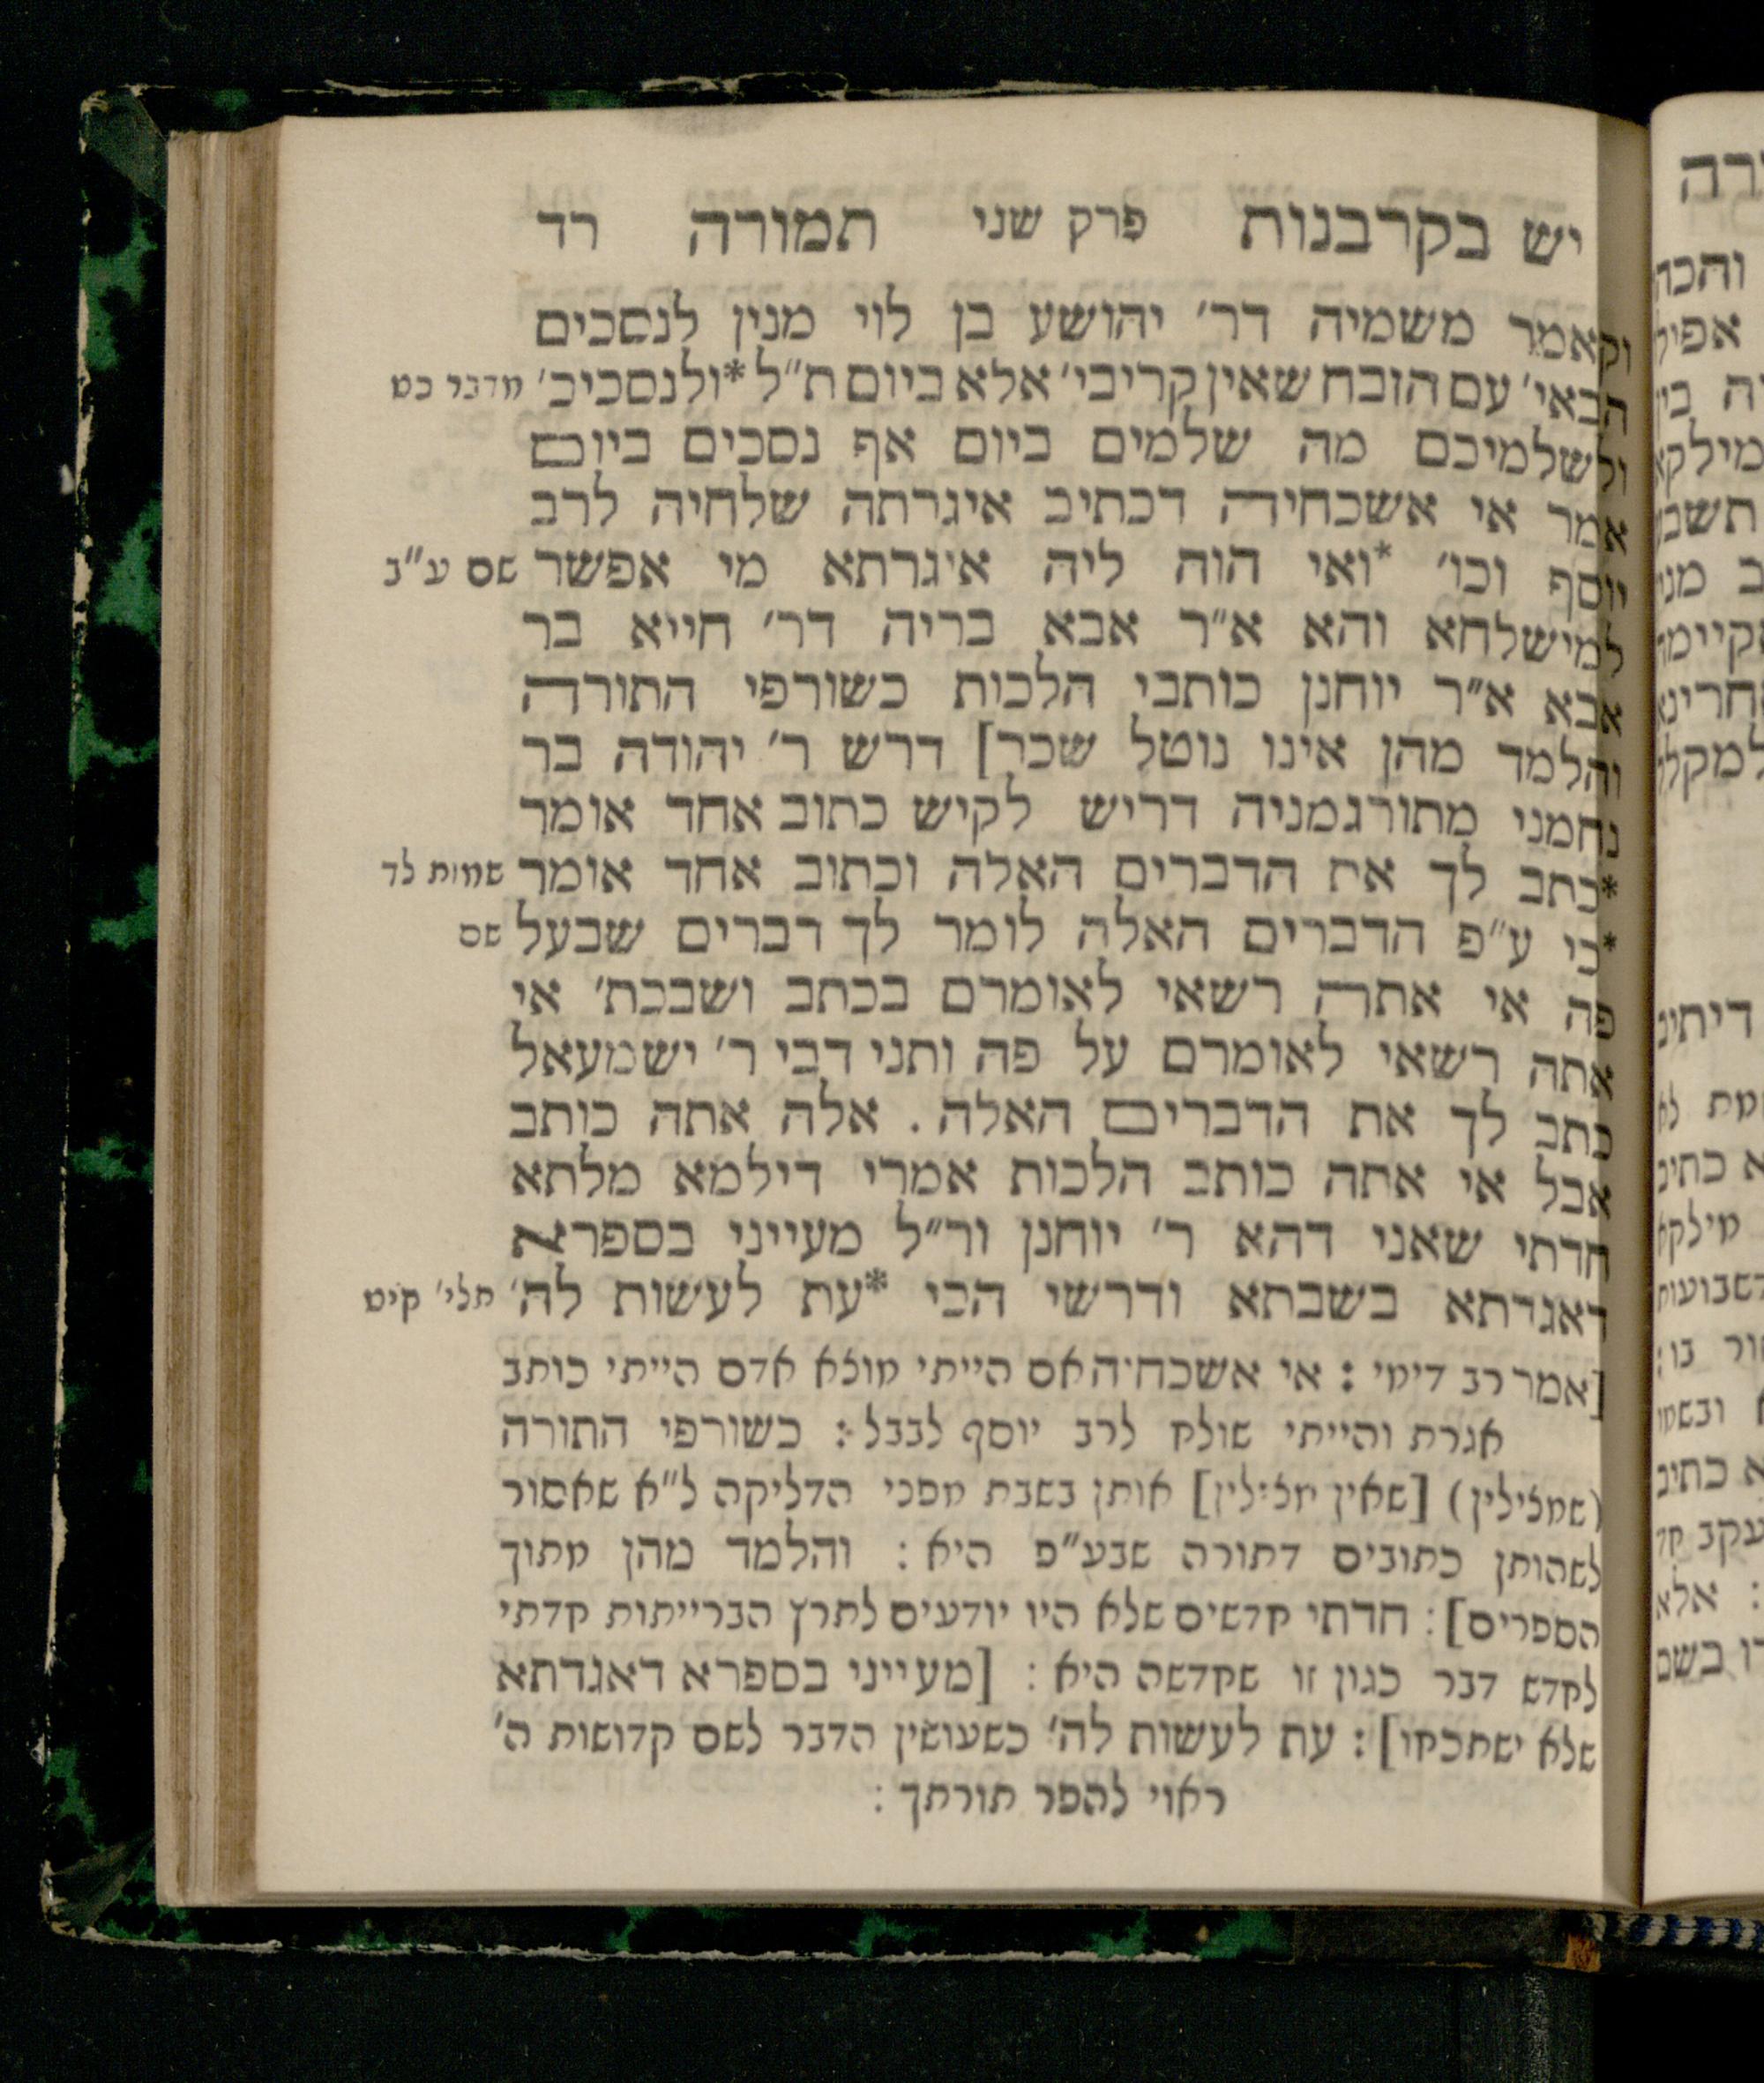 יש בקרבנות פרק שני תמורה רד
וקאמר משמיה דר׳ יהושע בן לוי מנין לנסכים
הבאי׳ עם הזבח שאין קריבי׳ אלא ביום ת״ל *ולנסכיכ׳ מדבר כט
ולשלמיכם מה שלמים ביום אף נסכים ביום
אמר אי אשכחיה דכתיב איגרתה שלחיה לרב
יוסף וכו׳ *ואי הוה ליה איגרתא מי אפשר שם ע״ב
למישלחא והא א״ר אבא בריה דר׳ חייא בר
אבא א״ר יוחנן כותבי הלכות כשורפי התורה
והלמד מהן אינו נוטל שכר] דרש ר׳ יהודה בר
נחמני מתורגמניה דריש לקיש כתוב אחד אומר
*כתב לך את הדברים האלה וכתוב אחד אומר שמות לד
*כי ע״פ הדברים האלה לומר לך דברים שבעל שם
פה אי אתה רשאי לאומרם בכתב ושבכת׳ אי
אתה רשאי לאומרם על פה ותני דבי ר׳ ישמעאל
כתב לך את הדברים האלה. אלה אתה כותב
אבל אי אתה כותב הלכות אמרי דילמא מלתא
חדתי שאני דהא ר׳ יוחנן ור״ל מעייני בספרא
דאגדתא בשבתא ודרשי הכי *עת לעשות לה׳ תלי׳ קיט
[אמר רב דימי: אי אשכחיה אם הייתי מוצא אדם הייתי כותב
אגרת והייתי שולח לרב יוסף לבבל: כשורפי התורה
(שמצילין) [שאין מצילין] אותן בשבת מפני הדליקה ל״א שאסור
לשהותן כתובים דתורה שבע״פ היא: והלמד מהן מתוך
הספרים]: חדתי חדשים שלא היו יודעים לתרץ הברייתות חדתי
לחדש דבר כגון זו שקדשה היא: [מעייני בספרא דאגדתא
שלא ישתכחו]: עת לעשות לה׳ כשעושין הדבר לשם קדושות ה׳
ראוי להפר תורתך:
רה
והכה
אפיל
מילקא
ב מני
דיתיב
א כתיב
מילקא
א כתיב
: אלא